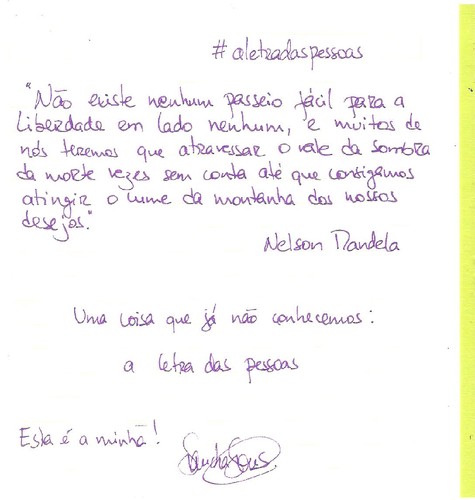 #aletradaspessoas
"Não existe nenhum passeio fácil para a
Liberdade em lado nenhum, e muitos de
nós teremos que atravessar o vale da sombra
da morte vezes sem conta até que consigamos
atingir o cume da montanha dos nossos
desejos."
Nelson Mandela
Uma coisa que já não conhecemos:
a letra das pessoas
Esta é a minha!